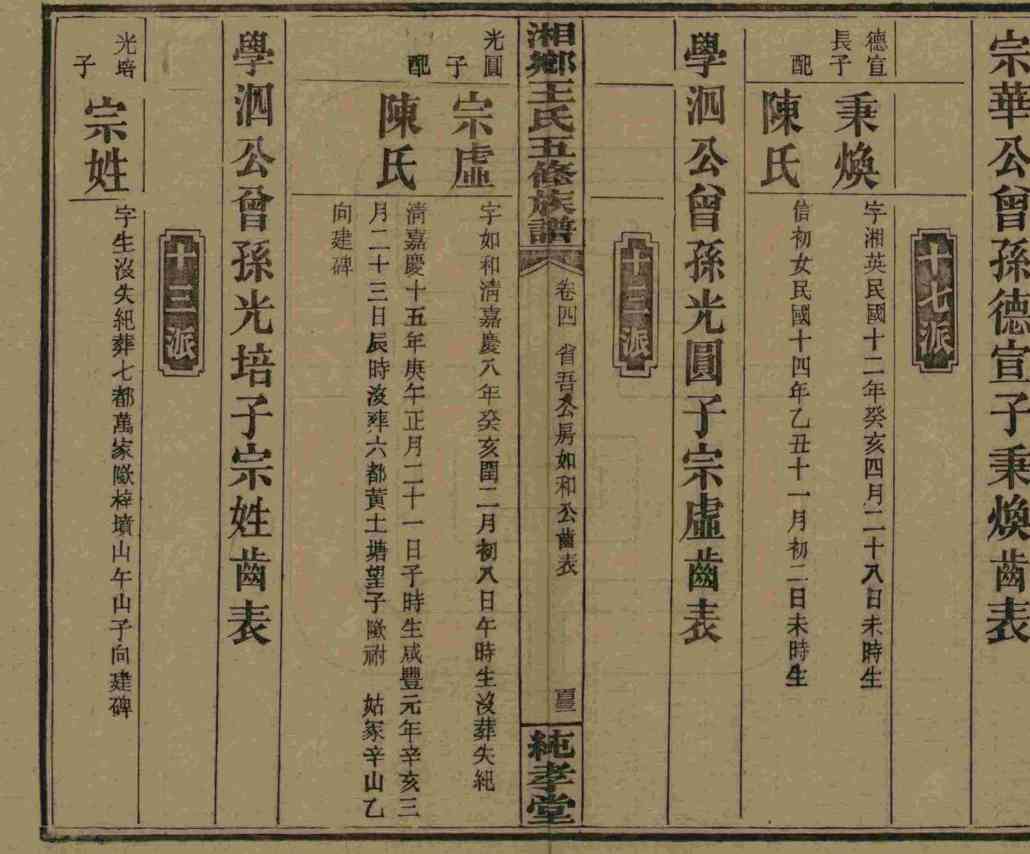 宗華公曾孫德宣子秉煥齒表
十七派
德宣
長子
秉煥
字湘英民國十二年癸亥四月二十八日未時生
配
陳氏
信初女民國十四年乙丑十一月初二日未時生
學泗公曾孫光圓子宗虛齒表
十三派
湘鄉王氏五修族譜
卷四
省吾公房如和公齒表
純孝堂
光圓
子
宗虛
字如和清嘉慶八年癸亥閏二月初八日午時生沒葬失紀
配
陳氏
清嘉慶十五年庚午正月二十一日子時生咸豐元年辛亥三
月二十三日辰時沒葬六都黃土塘望子歐祔 姑冢辛山乙
向建碑
學泗公曾孫光培子宗姓齒表
十三派
光培
子
宗姓
字生沒失紀葬七都萬家歐樟墳山午山子向建碑